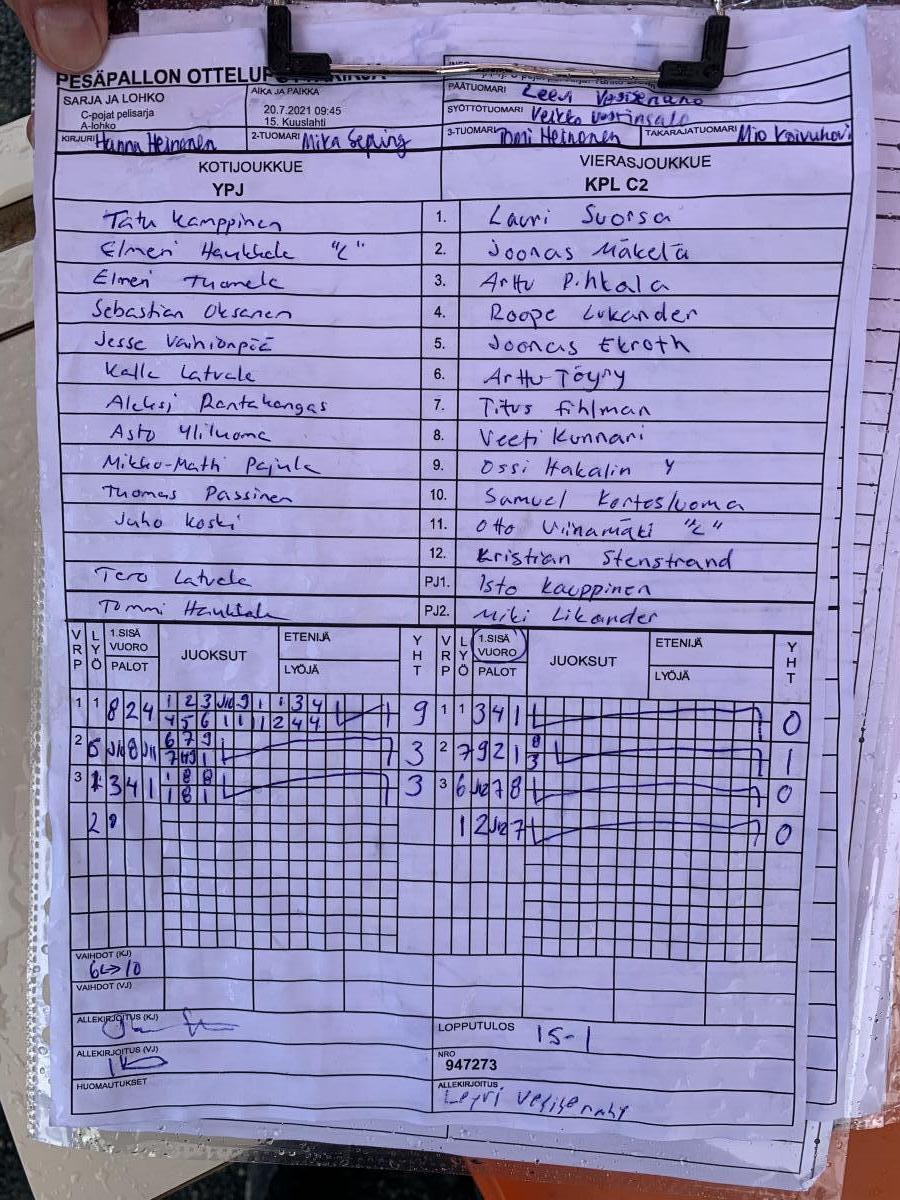 PESÄPALLON OTTELUP
SARJA JA LOHKO
C-pojat pelisarja
A-lohko
AIKA JA PAIKKA
20.7.2021 09:45
15. Kuuslahti
PÄÄTUOMARI Leevi
SYÖTTÖTUOMARI Veikko
KIRJURI Hanna Heinonen 2-TUOMARI Mika 3-TUOMARI Tomi Heinonen TAKARAJATUOMARI Mio Koivukari
KOTIJOUKKUE VIERASJOUKKUE
YPJ KPL C2
Tatu Kamppinen 1. Lauri Suorsa
Elmeri Haukkala "C" 2. Joonas Mäkelä
Elmeri Tuomela 3. Arttu Pihkala
Sebastian Oksanen 4. Roope Lukander
Jesse Vainionpää 5. Joonas Ekroth
Kalle Latvala 6. Arttu Töyry
Aleksi Rantakangas 7. Titus Fihlman
Asto Yliluoma 8. Veeti Kunnari
Mikko-Matti Pajula 9. Ossi Hakalin Y
Tuomas Passinen 10. Samuel Kortesluoma
Juho Koski 11. Otto Viinamäki "C"
12. Kristian Stenstrand
Tero Latvala PJ1. Isto Kauppinen
Tommi Haukkala PJ2. Miki Likander
VRP LYÖ 1.SISÄ VUORO PALOT JUOKSUT ETENIJÄ LYÖJÄ YHT VRP LYÖ 1.SISÄ VUORO PALOT JUOKSUT ETENIJÄ LYÖJÄ YHT
1 1 8 2 4 1 2 3 J10 9 1 1 3 4 9 1 1 3 4 1 0
4 5 6 1 1 1 2 4 4
2 5 J10 8 J11 6 7 9 3 2 7 9 2 1 8 1
3
3 1 3 4 1 1 8 8 3 3 6 J12 7 8 0
1 8 1
2 1 2 J12 7 0
VAIHDOT (KJ)
6<->10
VAIHDOT (VJ)
ALLEKIRJOITUS (KJ)
LOPPUTULOS 15-1
ALLEKIRJOITUS (VJ)
NRO
947273
HUOMAUTUKSET
ALLEKIRJOITUS